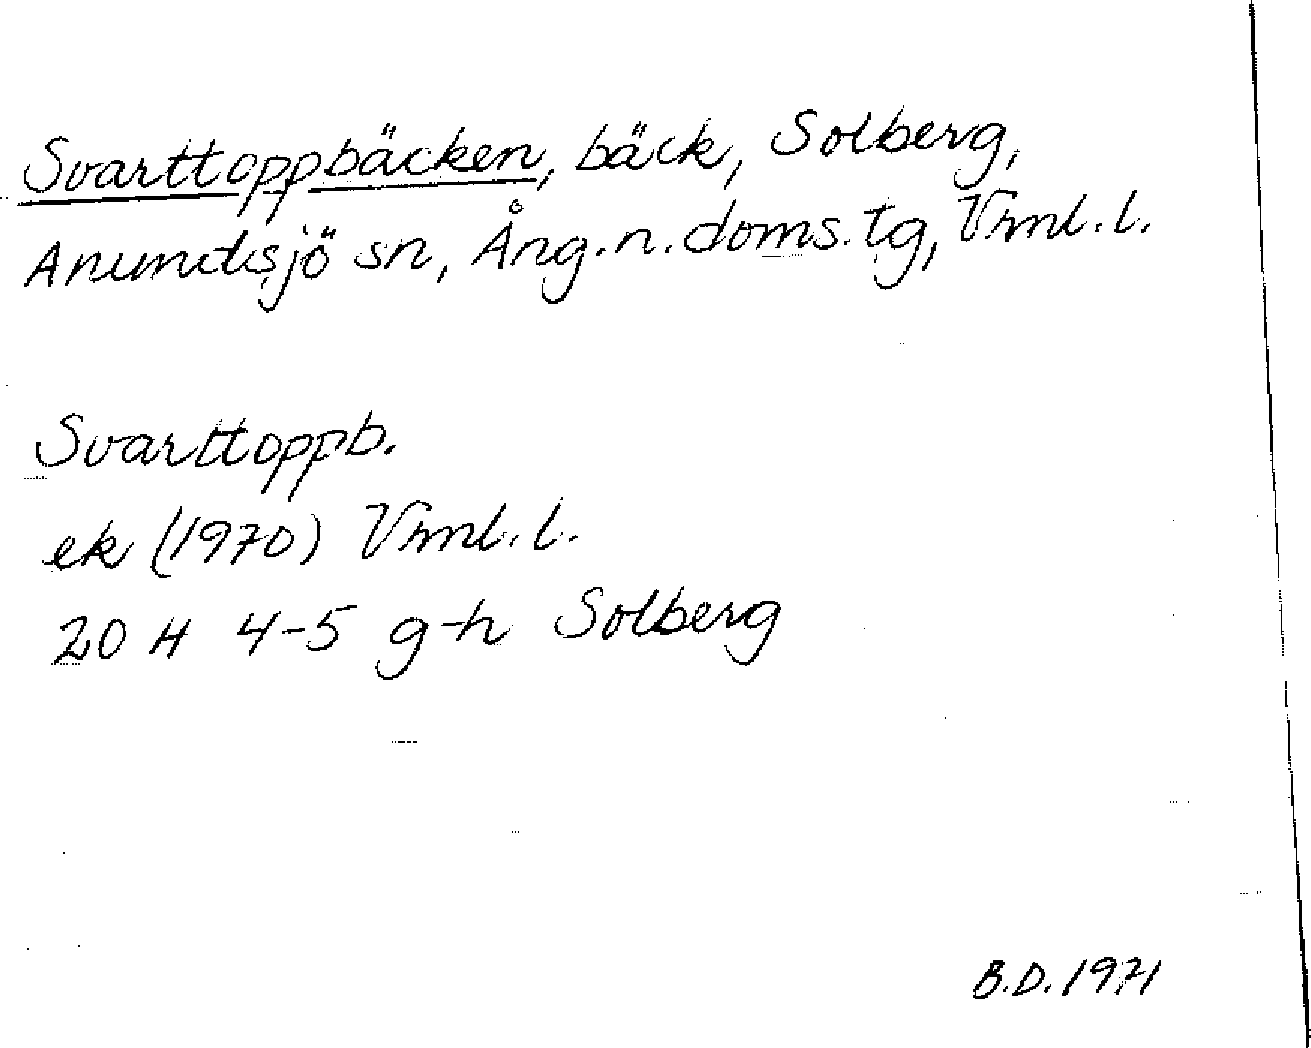 Svarttoppbäcken, bäck, Solberg,
Anundsjö sn, Ång.n.doms.tg, Vrml.l.
Svarttoppb.
ek (1970) Vrml.l.
20 H 4-5 g-h Solberg
B.D.1971